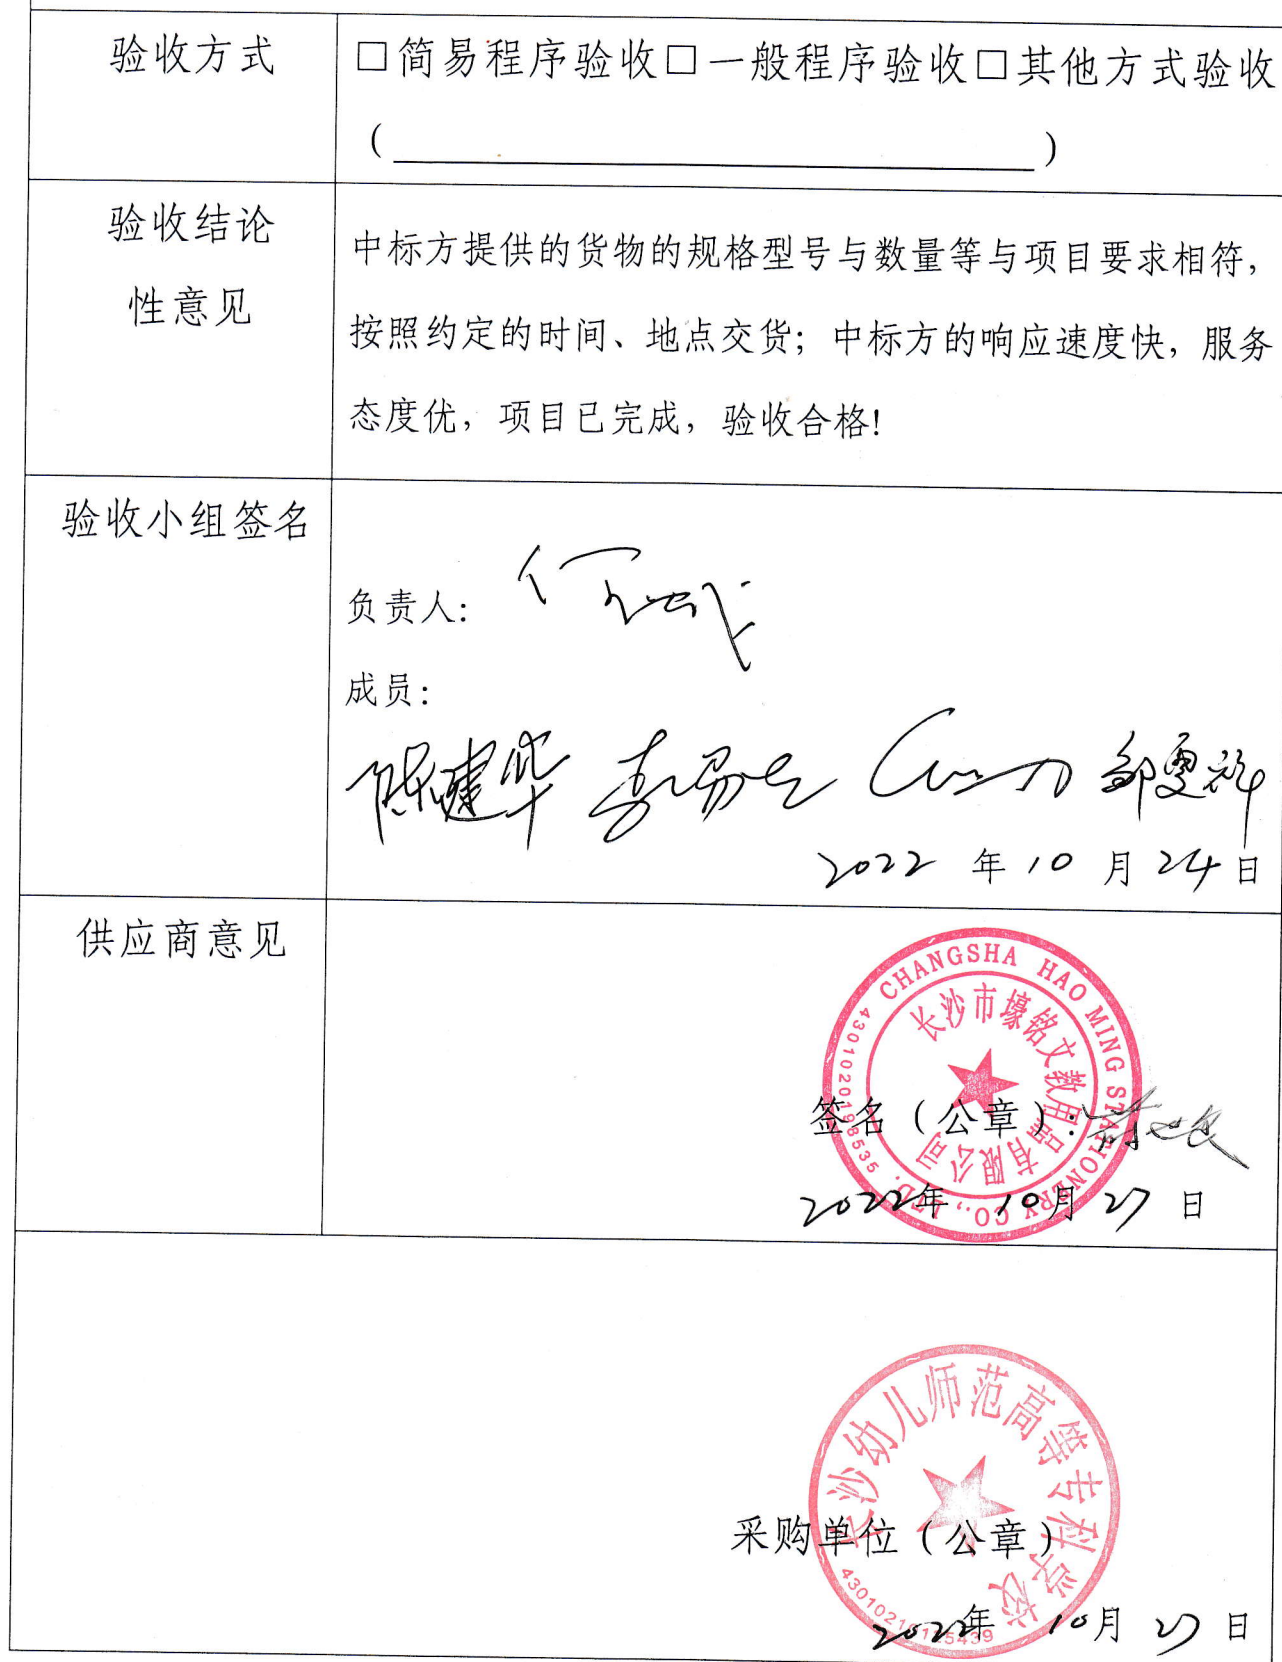 验收方式
□简易程序验收□一般程序验收□其他方式验收
(                )
验收结论
性意见
中标方提供的货物的规格型号与数量等与项目要求相符，
按照约定的时间、地点交货；中标方的响应速度快，服务
态度优，项目已完成，验收合格！
验收小组签名
负责人：
成员：
陈健华
2022 年 10 月 24 日
供应商意见
CHANGSHA HAO MING STATIONERY CO., LTD.
长沙市壕铭文教用品有限公司
4301020198535
签名（公章）：
2022年 10月 27 日
长沙幼儿师范高等专科学校
采购单位（公章）
2022年 10月 27 日